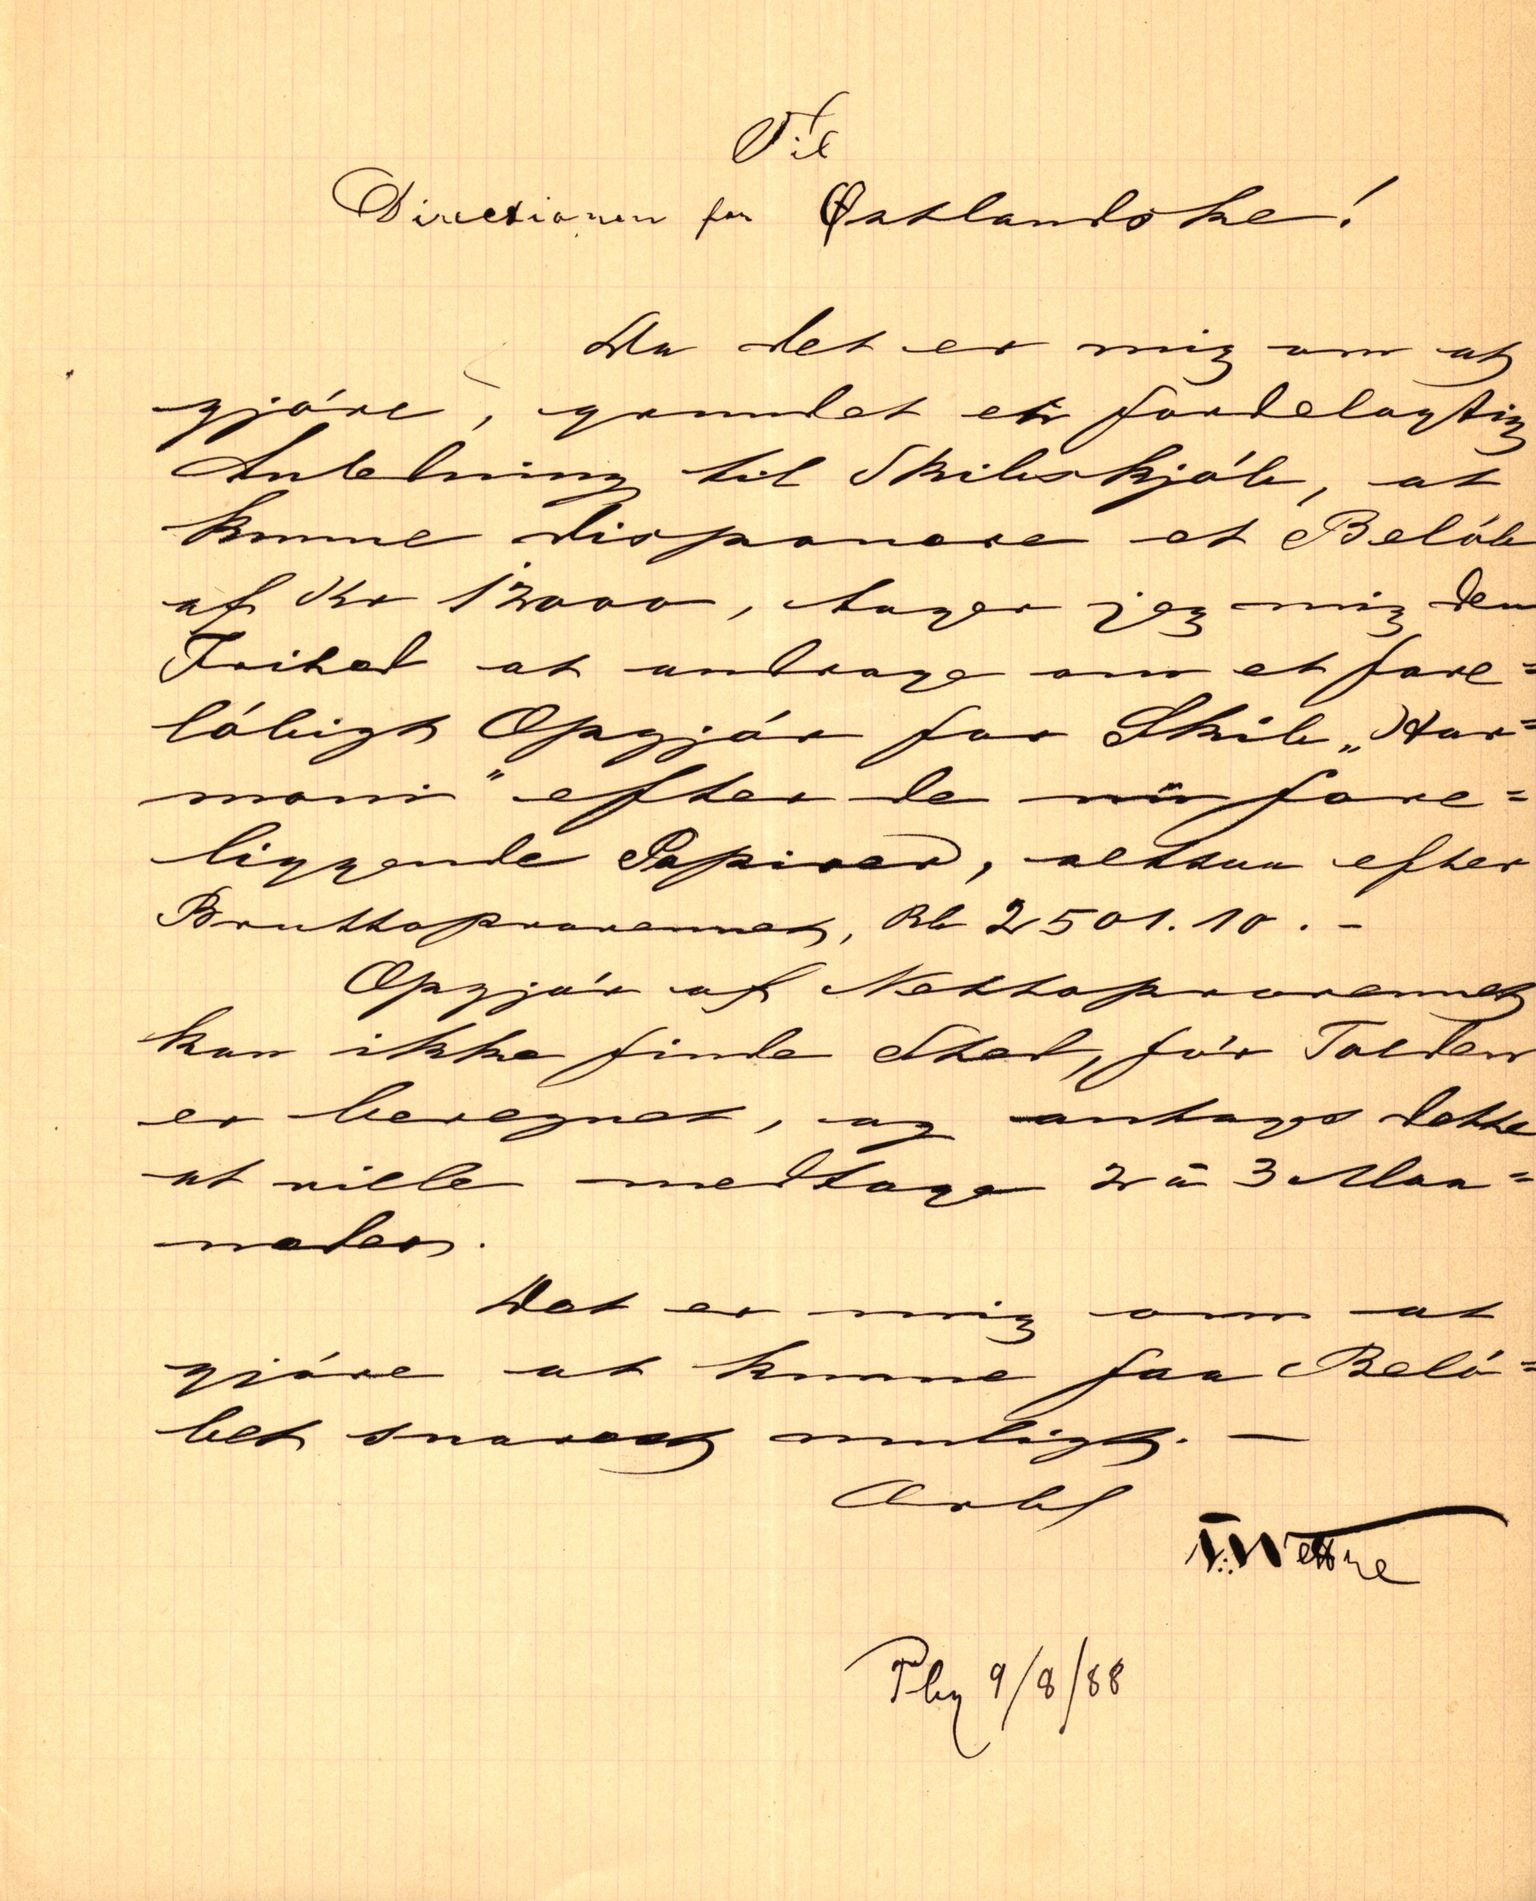 Til
Directionen for Østlandske!
Da det er mig om at
gjóre, grundet en fordelagtig
Anledning til Skibskjób, at
kunne disponere et Belób
af Kr 12000, tager jeg mig den
Frihed at andrage om et fore=
lóbigt Opgjór for Skib „Har=
moni" efter de nu fore=
liggende Papirer, altsaa efter
Bruttoprovenuet, Rb 2501.10. -
Opgjór af Nettoprovenuet
kan ikke finde Sted, fór Tolden
er beregnet, og antages dette
at ville medtage 2 à 3 Maa=
neder.
Det er mig om at
gjóre at kunne faa Beló=
bet snarest muligt. —
Ærbl
Wettre
Tbg 9/8/88